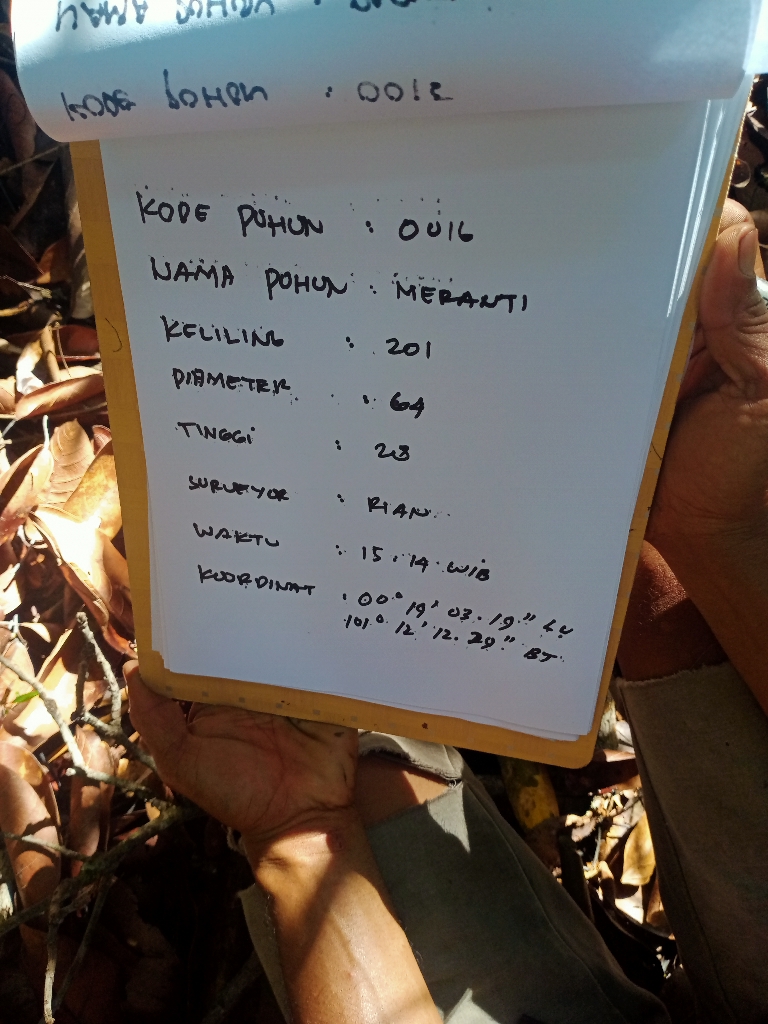 KODE POHON : 0012
KODE POHON : 0016
NAMA POHON : MERANTI
KELILING : 201
DIAMETER : 64
TINGGI : 28
SURVEYOR : RIAN
WAKTU : 15.14 WIB
KOORDINAT : 00° 19' 03.19" LU
101° 12' 12.29" BT